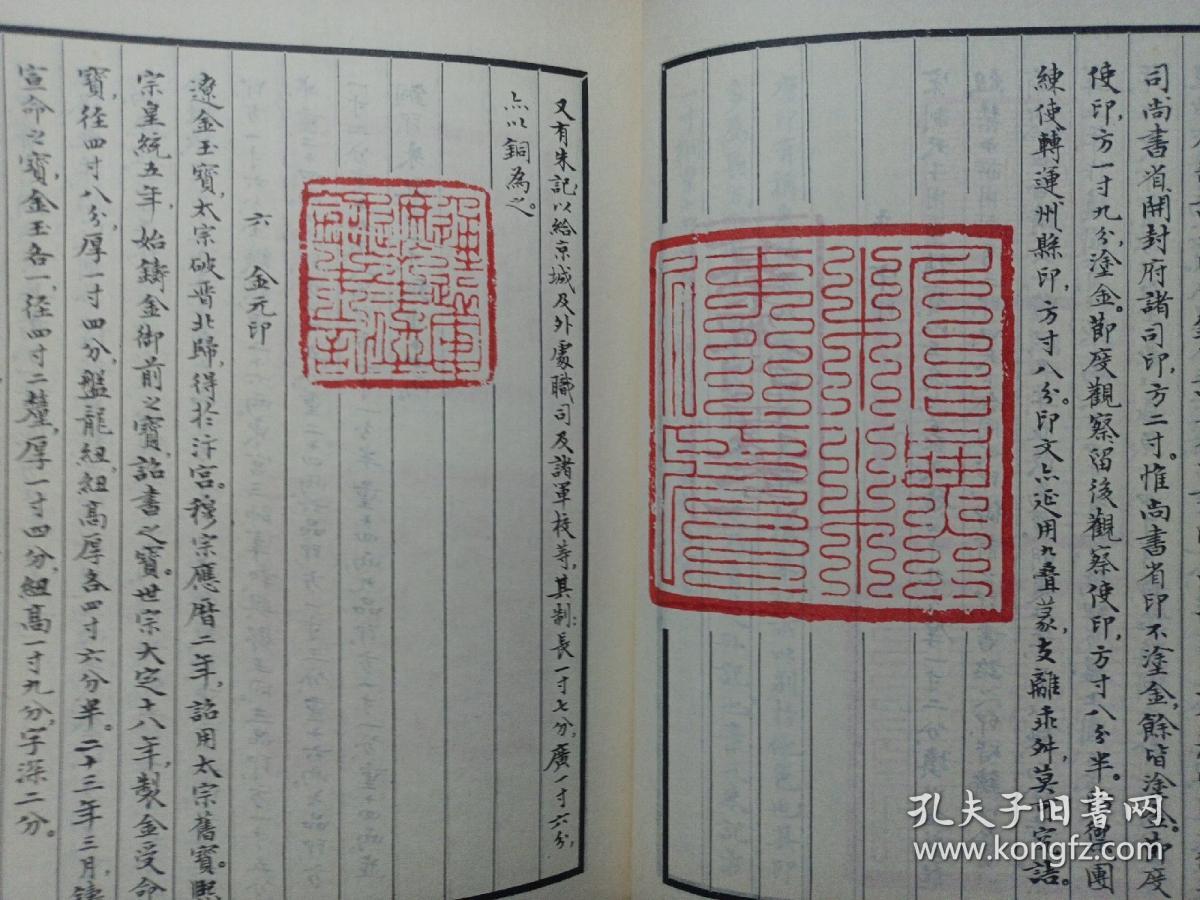 司尚書省、開封府諸司印,方二寸。惟尚書省印不塗金,餘皆塗金。節度
使印,方一寸九分,塗金。節度觀察留後觀察使印,方寸八分半。團
練使轉運州縣印,方寸八分。印文亦延用九叠篆,支離乖舛,莫可究詰。
又有朱記以給京城及外處職司及諸軍校等,其制:長一寸七分,廣一寸六分,
亦以銅為之。
六 金元印
遼金玉寶,太宗破晋北歸,得於汴宮。穆宗應曆二年,詔用太宗舊寶。熙
宗皇統五年,始鑄金御前之寶,詔書之寶。世宗大定十八年,製金受命
寶,徑四寸八分,厚一寸四分,盤龍紐,紐高厚各四寸六分半。二十三年三月,鑄
宣命之寶,金玉各一,徑四寸二釐,厚一寸四分,紐高一寸九分,字深二分。
孔夫子旧書网
www.kongfz.com